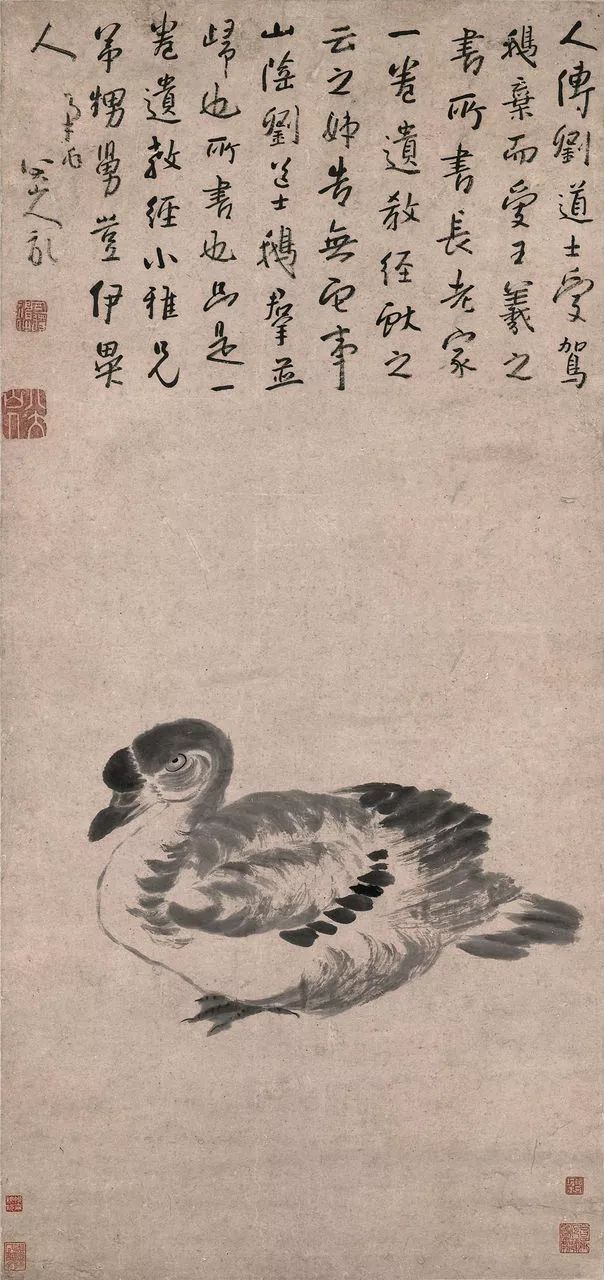 人傳劉道士愛駕
鵝棄而愛王羲之
書所書長老家
一卷遺教經獻之
云之姊告無它事
山陰劉道士鵝群並
歸也所書也只是一
卷遺教經小雅兄
弟甥舅豈伊異
人
八山人記